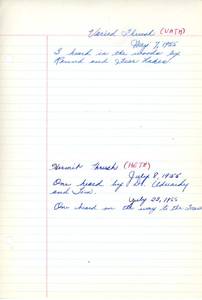 Varied Thrush (VATH)
May 7, 1955
I heard in the woods by
Round and Star Lakes
Hermit Thrush (HETH)
July 8, 1955
One heard by Dr. Edwardy
and Jim.
July 23, 1955
One heard on the way to the